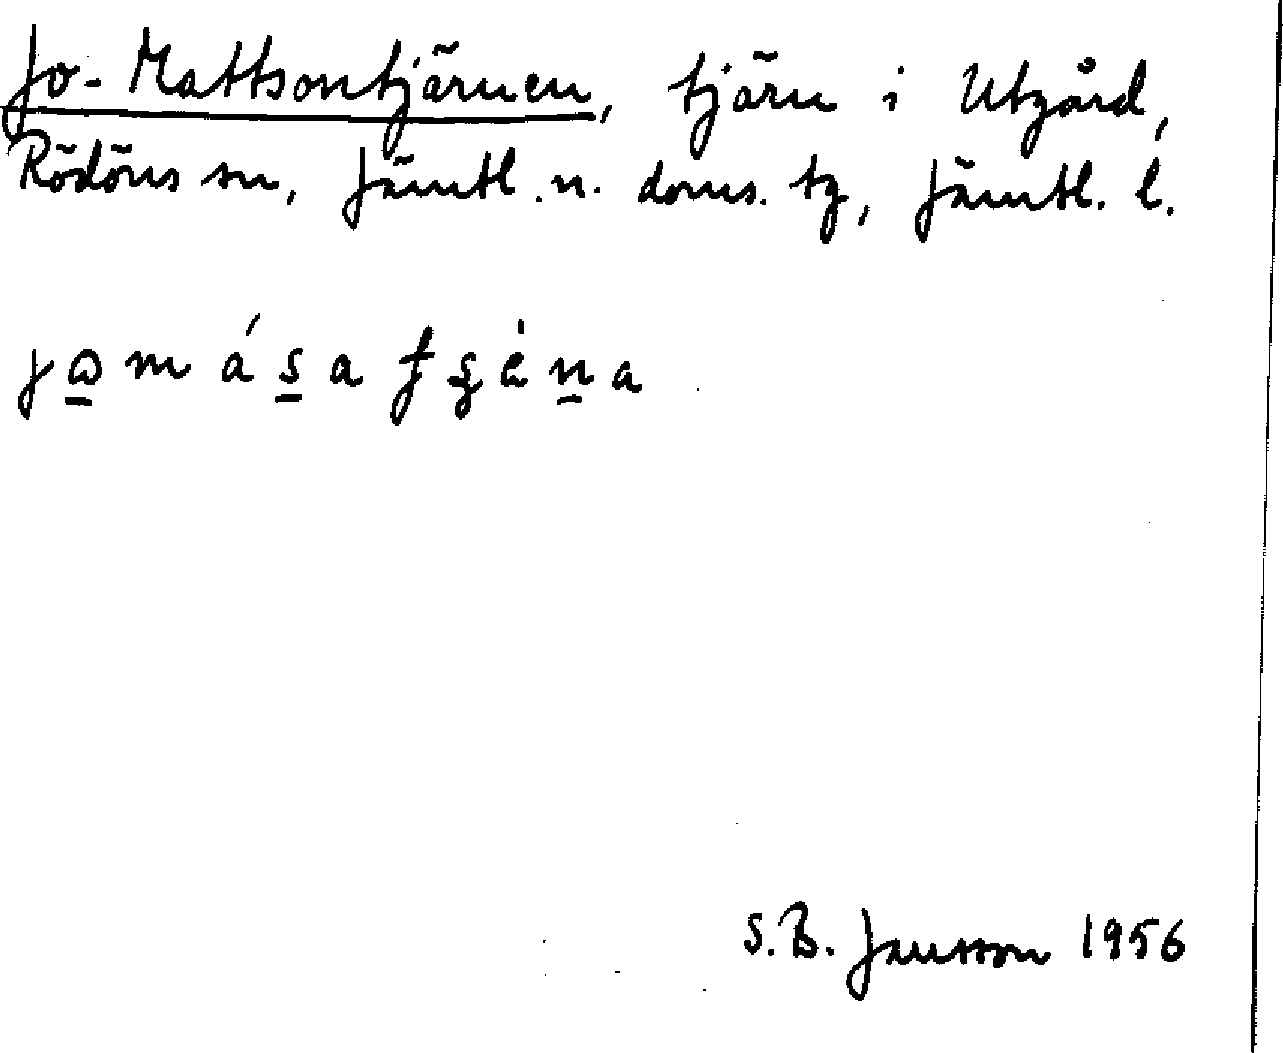 Jo-Mattsontjärnen, tjärn i Utgård,
Rödöns sn, Jämtl. n. doms. tg, Jämtl. l.
S.B. Jansson 1956